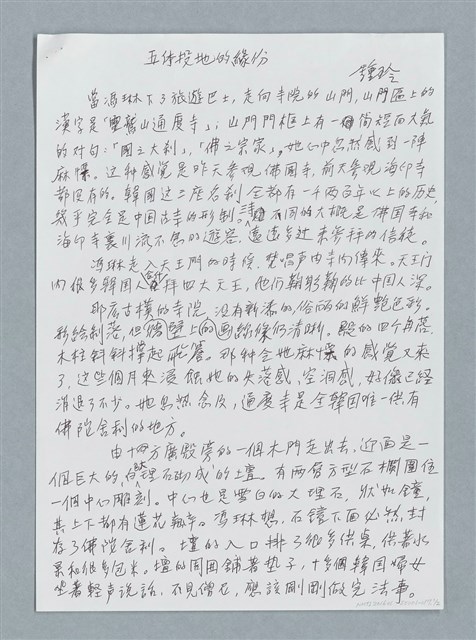 五体投地的緣份
鍾玲
當馮琳下了旅遊巴士，走向寺院的山門，山門匾上的
漢字是「靈鷲山通度寺」；山門門框上有一個簡短而大氣
的对句：「國之大刹」，「佛之宗家」。她心中忽然感到一陣
麻慄。这种感覺是昨天參观佛國寺，前天參观海印寺
都没有的。韓國这三座名刹全都有一千两百年以上的历史，
幾乎完全是中国古寺的形制；不同的大概是佛国寺和
海印寺裏川流不息的遊客，遠遠多过來参拜的信徒。
馮琳走入天王門的時候，梵唱声由寺内傳來。天王门
内很多韓国人合什拜四大天王，他们鞠躬鞠的比中国人深。
那麽古樸的寺院，没有新漆的、俗丽的鮮艷色彩，
彩绘剥落，但牆壁上的画線條仍清晰。殿的四个角落
木柱斜斜撑起飛簷。那种令她麻慄的感覺又來
了，这些個月來浸蝕她的失落感、空洞感，好像已經
消退了不少。她忽然念及，通度寺是全韓国唯一供有
佛陀舍利的地方。
由十四方廣殿旁的一個木門走出去，迎面是一
個巨大的、白大理石砌成的土壇。有两層方型石欄圍住
一個中心雕刻。中心也是雪白的大理石，狀如鐘，
其上下都有蓮花瓣。馮琳想，石鐘下面必然封
存了佛陀舍利。壇的入口排了很多供桌，供着水
果和很多包米。壇的周围鋪著垫子，十多個韓国婦女
坐著輕声说話，不見僧尼，應該剛剛做完法事。